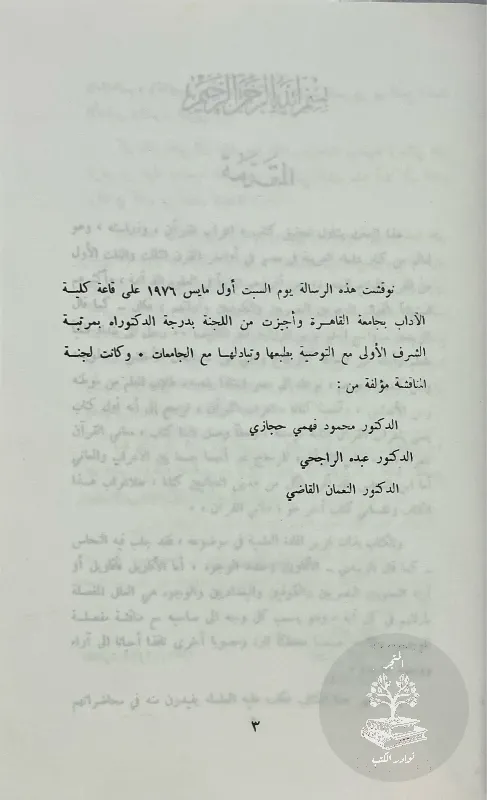 نوقشت هذه الرسالة يوم السبت أول مايس ١٩٧٦ على قاعة كلية
الآداب بجامعة القاهرة وأجيزت من اللجنة بدرجة الدكتوراء بمرتبة
الشرف الأولى مع التوصية بطبعها وتبادلها مع الجامعات ٠ وكانت لجنة
المناقشة مؤلفة من :
الدكتور محمود فهمي حجازي
الدكتور عبده الراجحي
الدكتور النعمان القاضي
٣
المتجر
نوادر الكتب